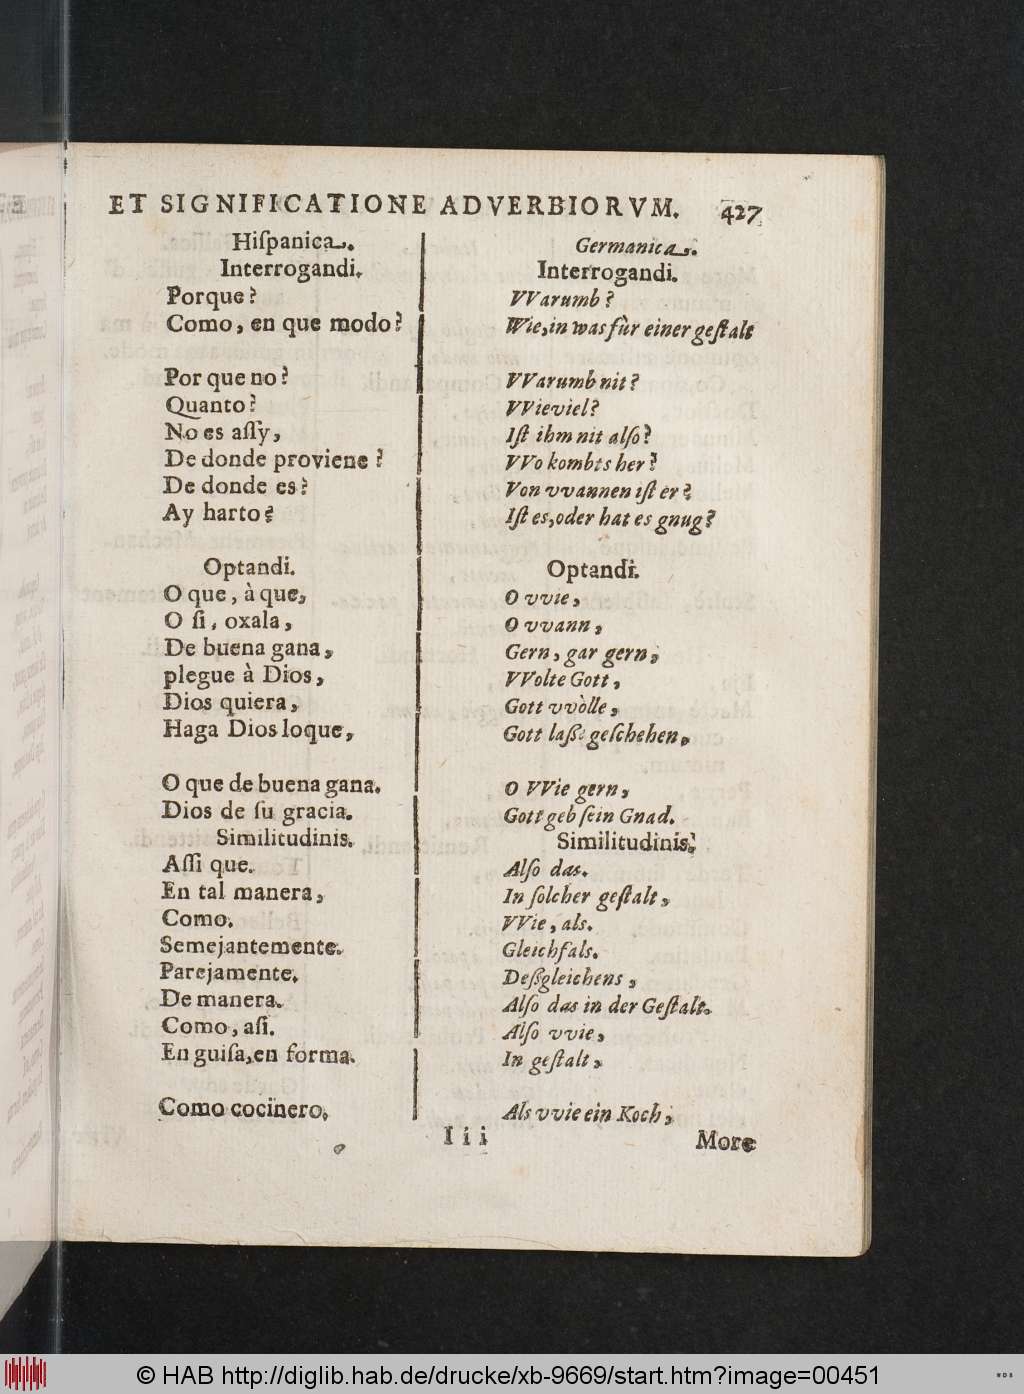 ET SIGNIFICATIONE ADVERBIORVM. 427
Hiſpanica.
Interrogandi.
Porque?
Como, en que modo?
Por que no?
Quanto?
No es aſſy,
De donde proviene?
De donde es?
Ay harto?
Optandi.
O que, à que,
O ſi, oxala,
De buena gana,
plegue à Dios,
Dios quiera,
Haga Dios loque,
O que de buena gana.
Dios de ſu gracia.
Similitudinis.
Aſſi que.
En tal manera,
Como.
Semejantemente.
Parejamente.
De manera.
Como, aſi.
En guiſa, en forma.
Como cocinero.
Germanica.
Interrogandi.
VVarumb?
Wie, in was fùr einer geſtalt
VVarumb nit?
VVieviel?
Iſt ihm nit alſo?
VVo kombts her?
Von vvannen iſt er?
Iſt es, oder hat es gnug?
Optandi.
O vvie,
O vvann,
Gern, gar gern,
VVolte Gott,
Gott vvòlle,
Gott laße geſchehen,
O VVie gern,
Gott geb ſein Gnad.
Similitudinis.
Alſo das.
In ſolcher geſtalt,
VVie, als.
Gleichfals.
Deßgleichens,
Alſo das in der Geſtalt.
Alſo vvie,
In geſtalt,
Als vvie ein Koch,
I i i
More
© HAB http://diglib.hab.de/drucke/xb-9669/start.htm?image=00451